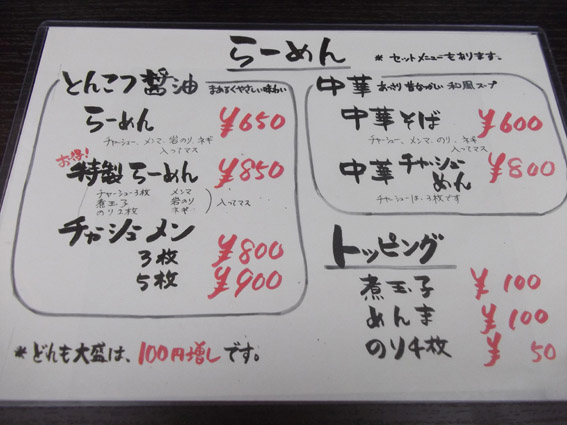 らーめん
* セットメニューもあります。
とんこつ醤油 まあるくやさしい味わい
らーめん ¥650
チャーシュー、メンマ、岩のり、ネギ
入ってマス
お得!
特製らーめん ¥850
チャーシュー3枚 メンマ
煮玉子 岩のり
のり2枚 ネギ
入ってマス
チャーシューメン
3枚 ¥800
5枚 ¥900
* どんも大盛は、100円増しです。
中華 あっさり昔なつかしい 和風スープ
中華そば ¥600
チャーシュー、メンマ、のり、ネギ
入ってマス
中華チャーシューめん ¥800
チャーシューは、3枚です
トッピング
煮玉子 ¥100
めんま ¥100
のり4枚 ¥50